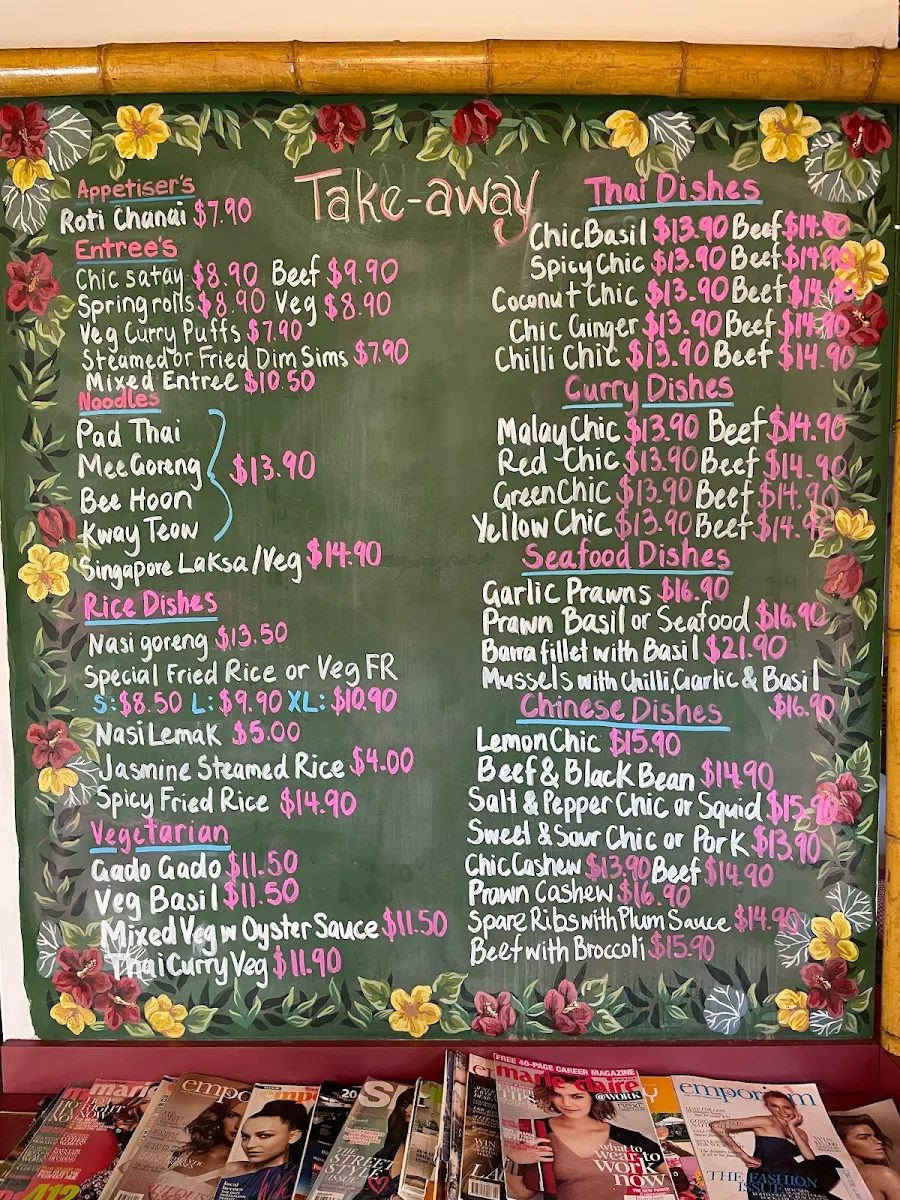 Take-away
Appetiser's
Roti Chanai $7.90
Entree's
Chic satay $8.90 Beef $9.90
Spring rolls $8.90 Veg $8.90
Veg Curry Puffs $7.90
Steamed or Fried Dim Sims $7.90
Mixed Entree $10.50
Noodles
Pad Thai
Mee Goreng
Bee Hoon
Kway Teow
$13.90
Singapore Laksa/Veg $14.90
Rice Dishes
Nasi goreng $13.50
Special Fried Rice or Veg FR
S: $8.50 L: $9.90 XL: $10.90
Nasi Lemak $5.00
Jasmine Steamed Rice $4.00
Spicy Fried Rice $14.90
Vegetarian
Gado Gado $11.50
Veg Basil $11.50
Mixed Veg w Oyster Sauce $11.50
Thai Curry Veg $11.90
Thai Dishes
Chic Basil $13.90 Beef $14.90
Spicy Chic $13.90 Beef $14.90
Coconut Chic $13.90 Beef $14.90
Chic Ginger $13.90 Beef $14.90
Chilli Chic $13.90 Beef $14.90
Curry Dishes
Malay Chic $13.90 Beef $14.90
Red Chic $13.90 Beef $14.90
Green Chic $13.90 Beef $14.90
Yellow Chic $13.90 Beef $14.90
Seafood Dishes
Garlic Prawns $16.90
Prawn Basil or Seafood $16.90
Barra fillet with Basil $21.90
Mussels with Chilli, Garlic & Basil
$16.90
Chinese Dishes
Lemon Chic $15.90
Beef & Black Bean $14.90
Salt & Pepper Chic or Squid $15.90
Sweet & Sour Chic or Pork $13.90
Chic Cashew $13.90 Beef $14.90
Prawn Cashew $16.90
Spare Ribs with Plum Sauce $14.90
Beef with Broccoli $15.90
marie
empo
THE
STREET
STYLE
ISSUE
FREE 40-PAGE CAREER MAGAZINE
marie claire
@WORK
what to
wear to
work
now
emporium
THE FASHION
ISSUE